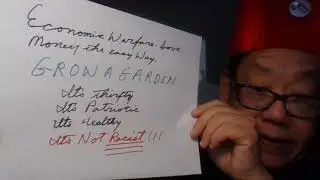 Economic Warfare. Save
Money the easy way.
GROW A GARDEN
Its thrifty
Its Patriotic
Its Healthy
Its Not Racist !!!